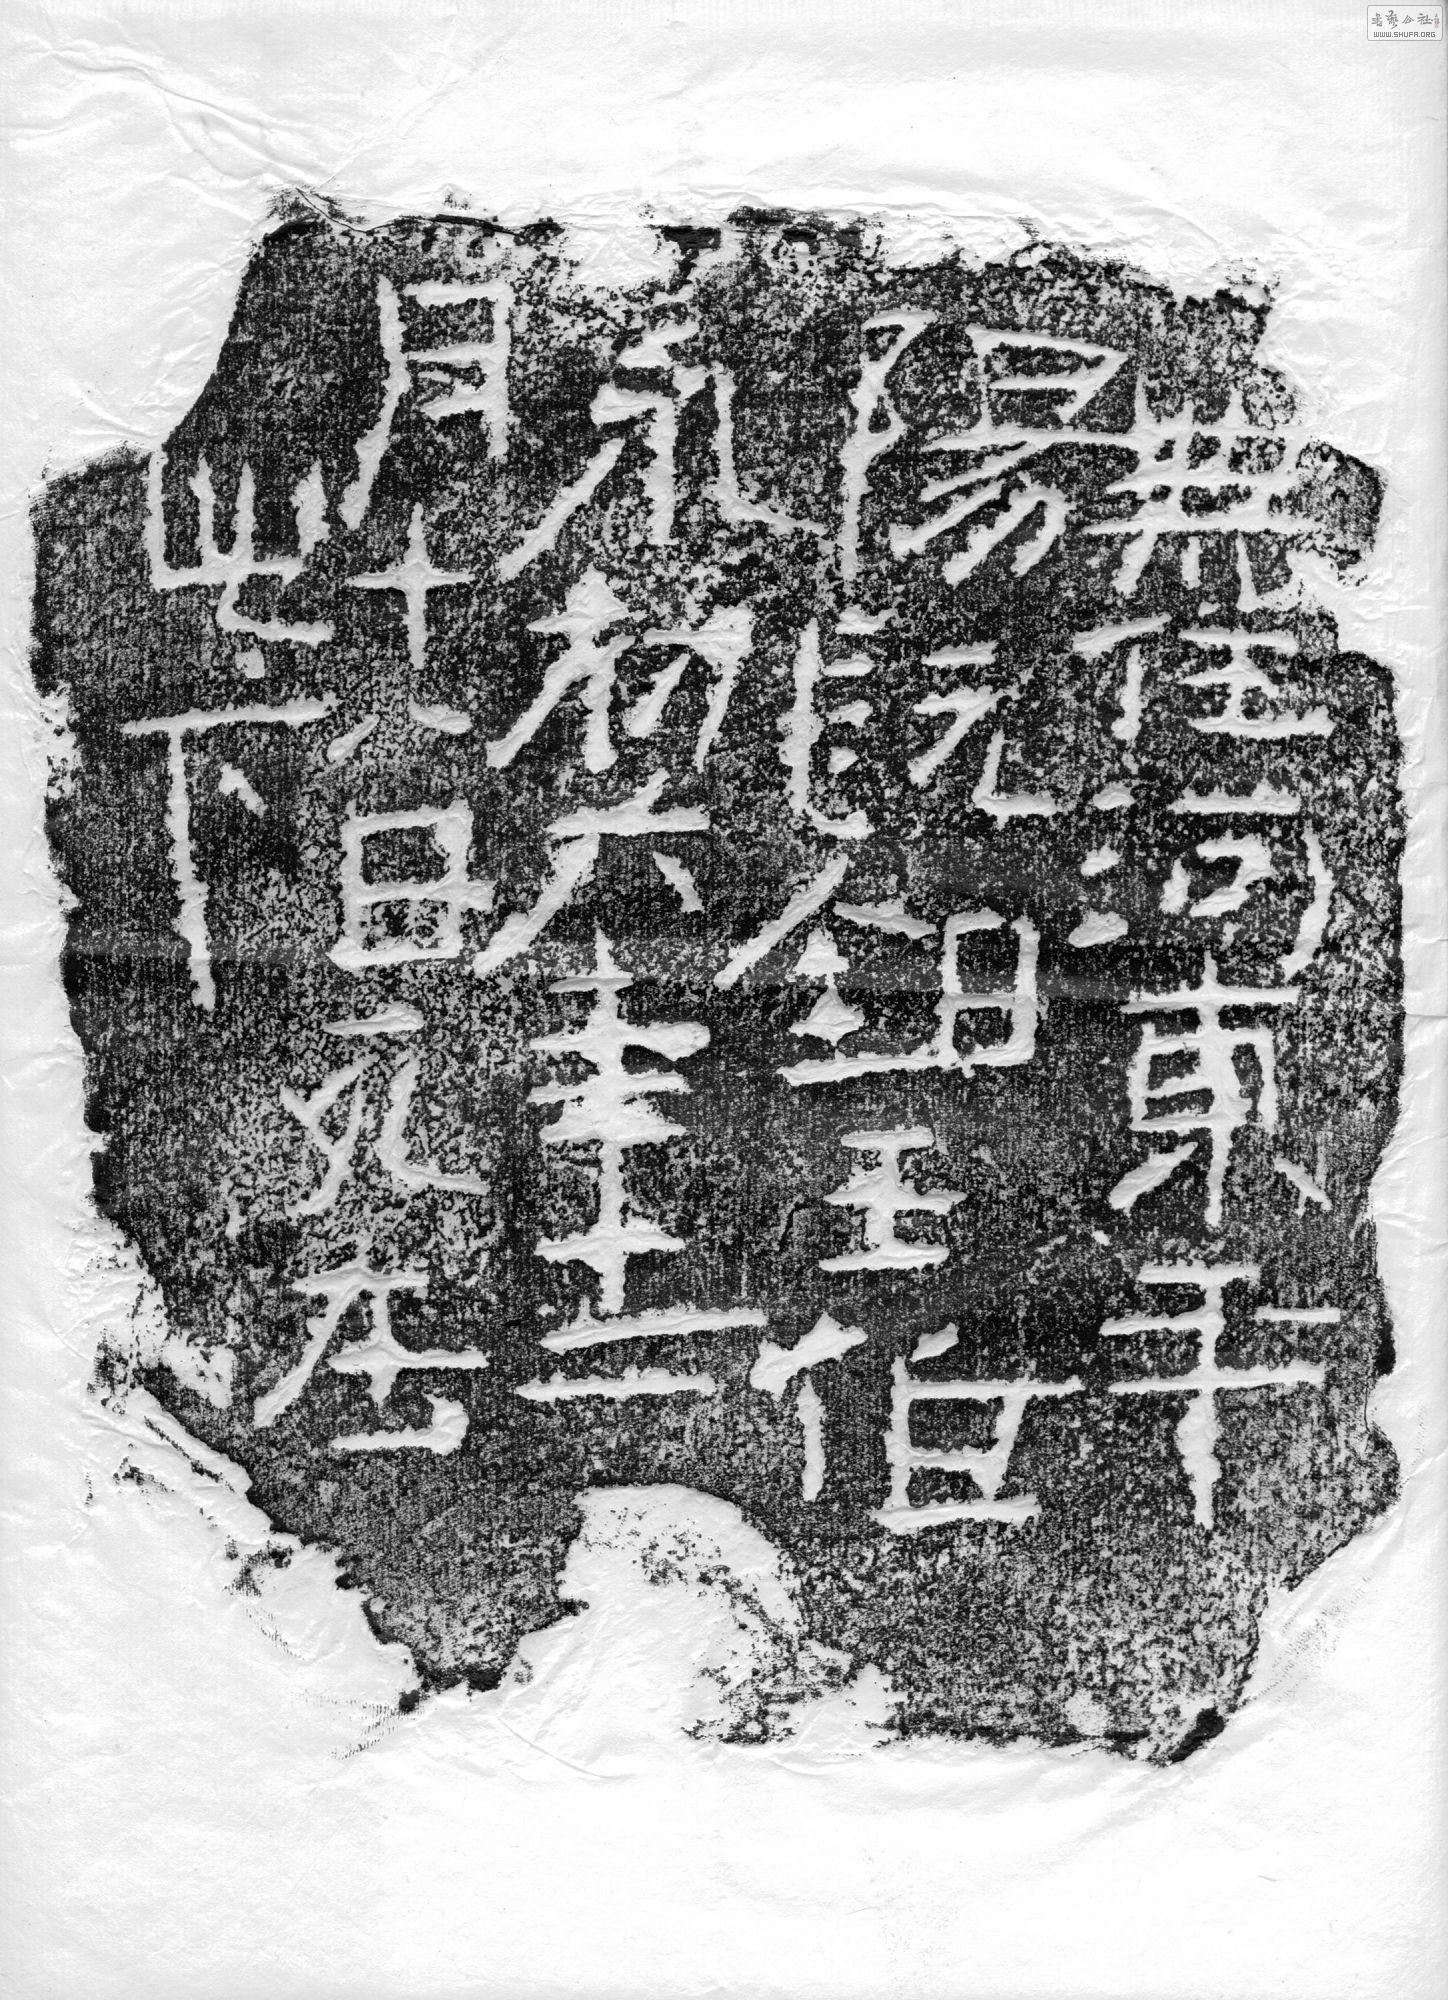 無任河東平
陽髡鉗王伯
永初六年二
月十八日死在
此下
書藝公社
WWW.SHUFA.ORG